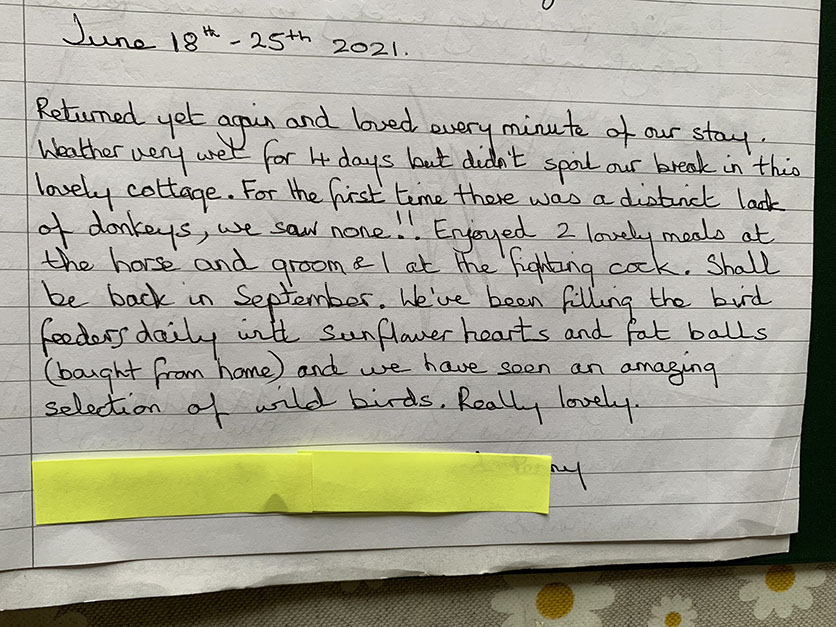 June 18th - 25th 2021.
Returned yet again and loved every minute of our stay.
Weather very wet for 4 days but didn't spoil our break in this
lovely cottage. For the first time there was a distinct lack
of donkeys, we saw none!! Enjoyed 2 lovely meals at
the horse and groom & 1 at the fighting cock. Shall
be back in September. We've been filling the bird
feeders daily with sunflower hearts and fat balls
(bought from home) and we have seen an amazing
selection of wild birds. Really lovely.